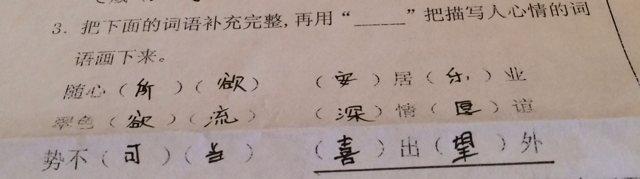 3. 把下面的词语补充完整,再用“____”把描写人心情的词
语画下来。
随心(所)(欲) (安)居(乐)业
翠色(欲)(流) (深)情(厚)谊
势不(可)(当) (喜)出(望)外